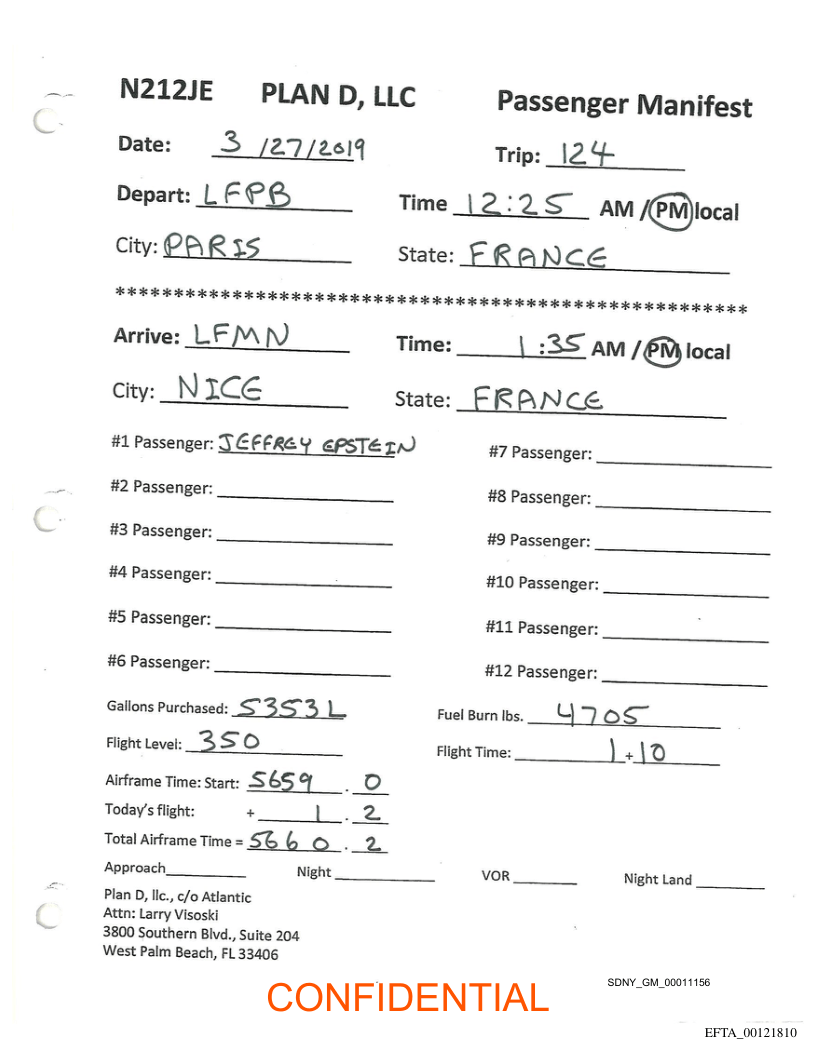 N212JE PLAN D, LLC Passenger Manifest
Date: 3 /27/2019 Trip: 124
Depart: LFPB Time 12:25 AM / PM local
City: PARIS State: FRANCE
******************************************************
Arrive: LFMN Time: 1:35 AM / PM local
City: NICE State: FRANCE
#1 Passenger: JEFFREY EPSTEIN #7 Passenger:
#2 Passenger: #8 Passenger:
#3 Passenger: #9 Passenger:
#4 Passenger: #10 Passenger:
#5 Passenger: #11 Passenger:
#6 Passenger: #12 Passenger:
Gallons Purchased: 5353L Fuel Burn lbs. 4705
Flight Level: 350 Flight Time: 1+10
Airframe Time: Start: 5659 . 0
Today's flight: + 1 . 2
Total Airframe Time = 5660 . 2
Approach Night VOR Night Land
Plan D, llc., c/o Atlantic
Attn: Larry Visoski
3800 Southern Blvd., Suite 204
West Palm Beach, FL 33406
SDNY_GM_00011156
CONFIDENTIAL
EFTA_00121810